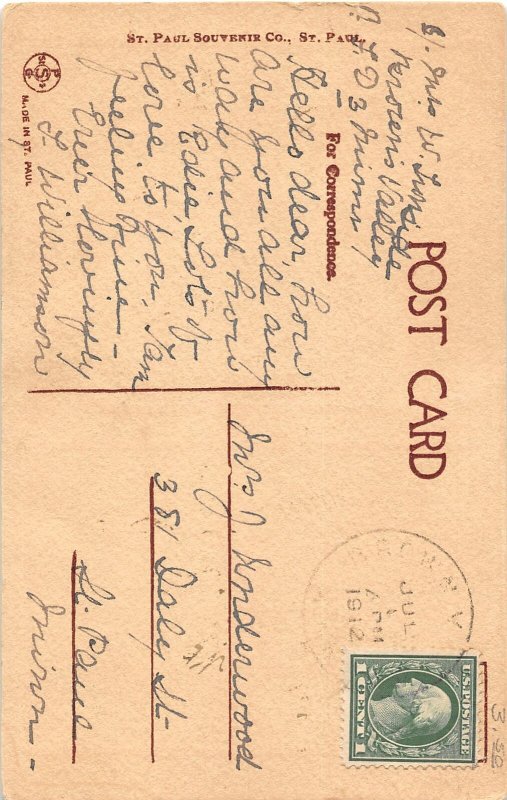 POST CARD
ST. PAUL SOUVENIR CO., ST. PAUL.
For Correspondence.
MADE IN ST. PAUL
% Mrs W.
Valley
R. F. D 3 Minn
Hello dear, how
are you all any
way and how
is Edie Lots of
love to you, I am
feeling fine -
Ever Lovingly
L. Williamson
Mrs J Underwood
381 Daly St-
St. Paul
Minn -
BROWNS VA
JUL
1
1912
U.S. POSTAGE
1 CENT 1
3.50